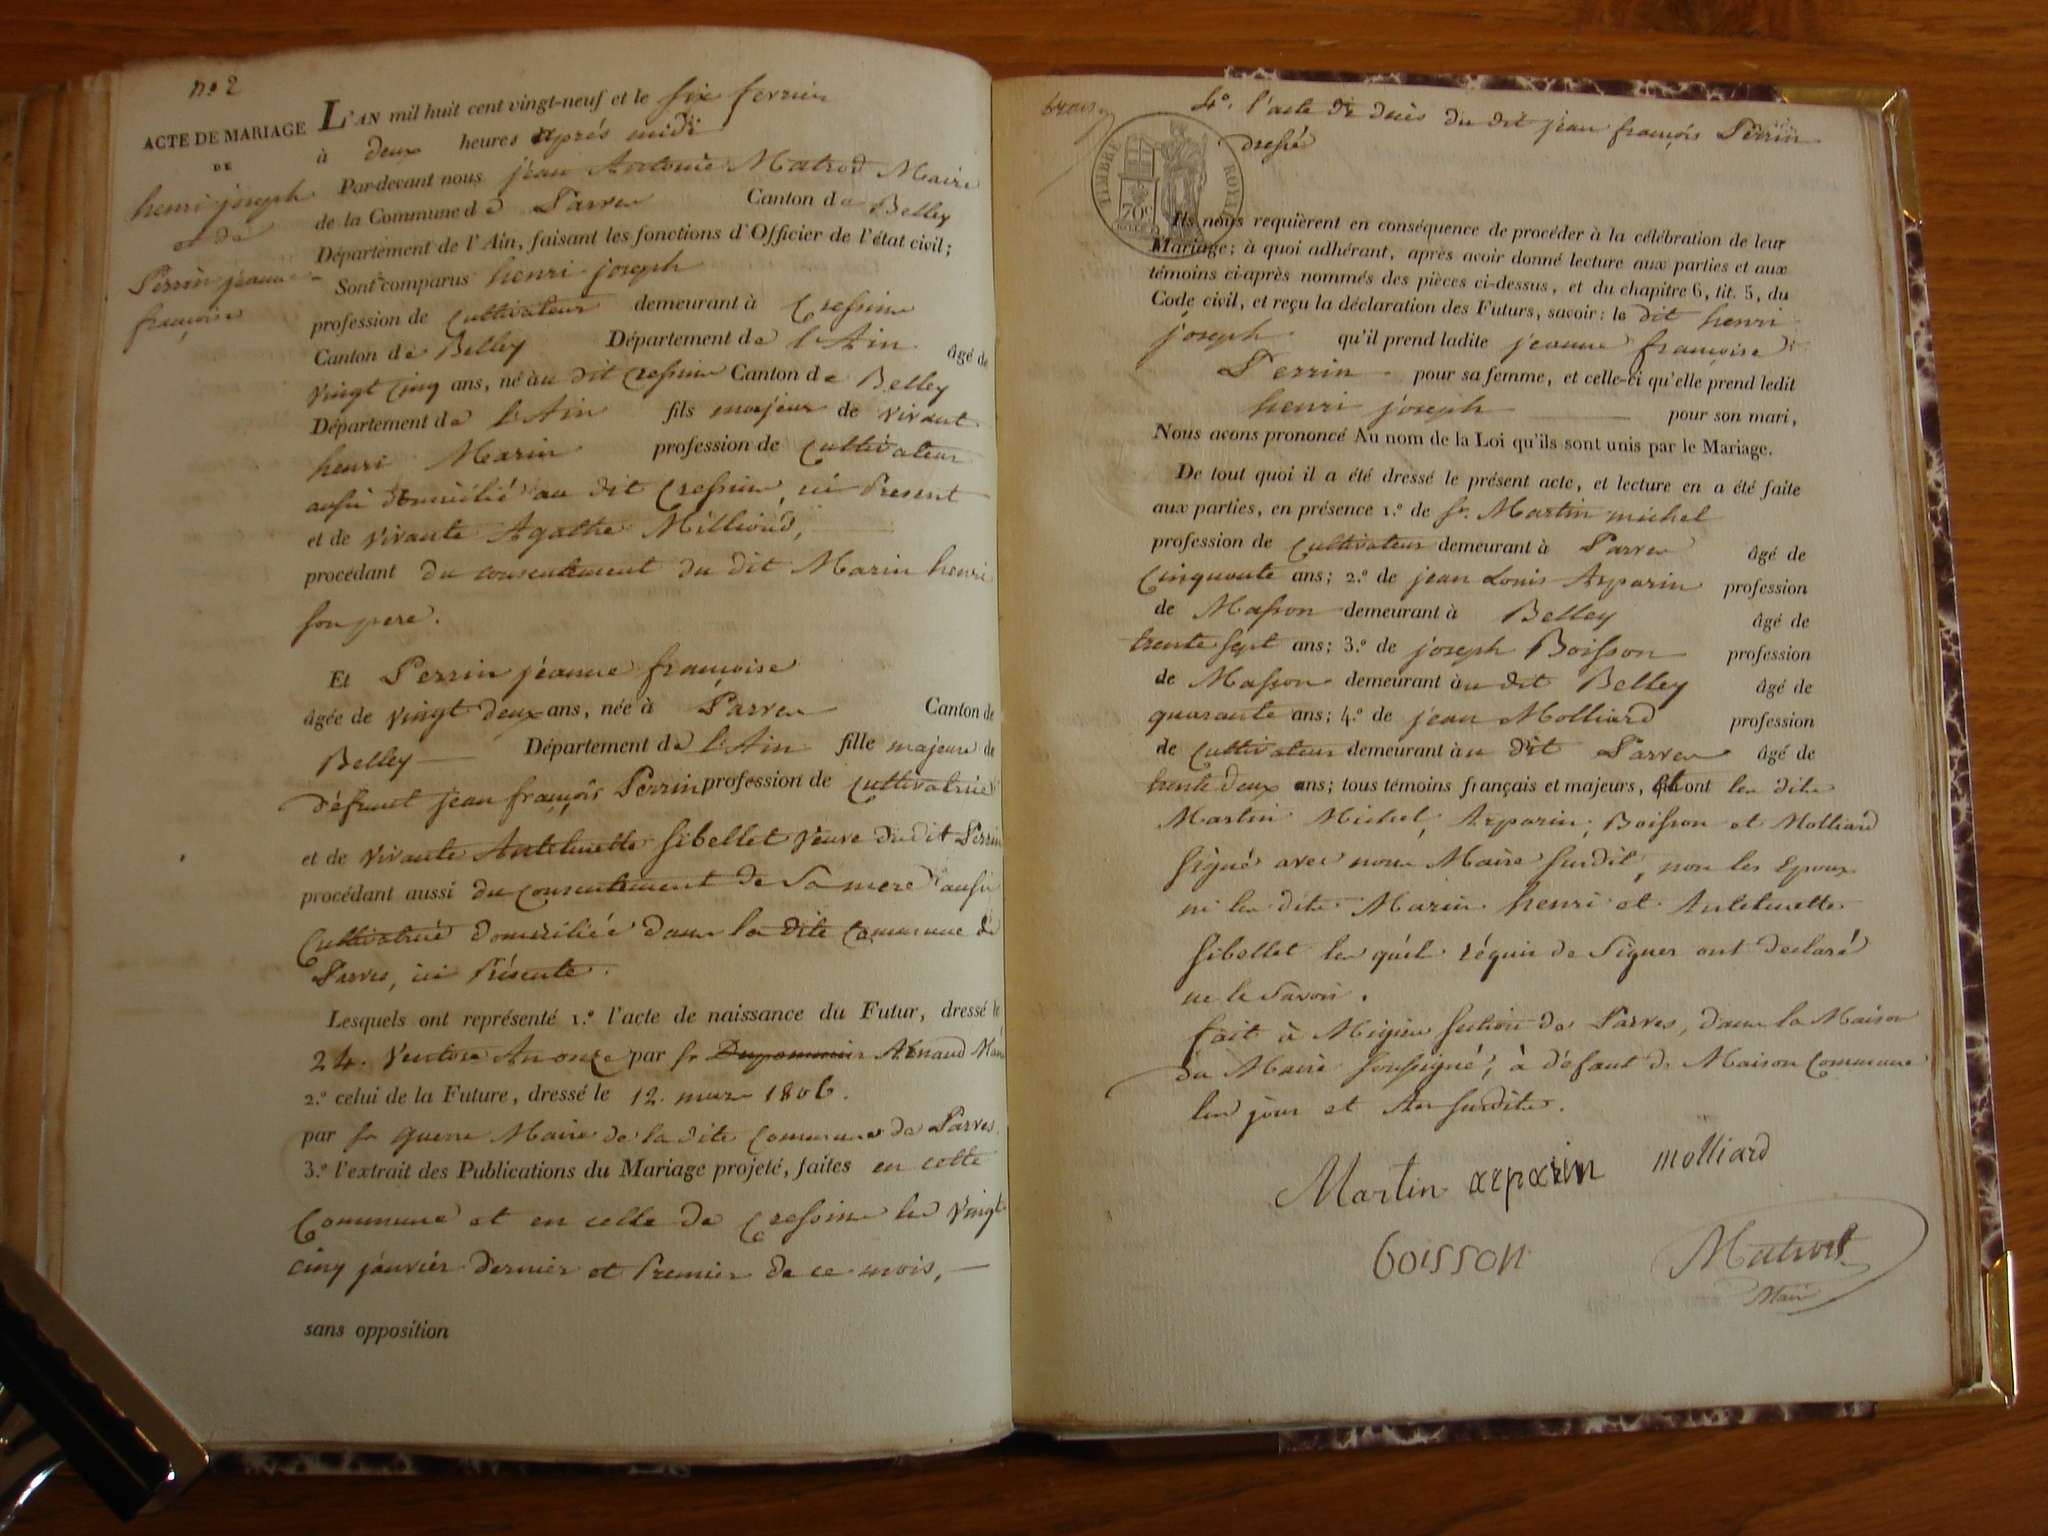 n.º 2
ACTE DE MARIAGE
DE
henri joseph
et de
Perrin jeanne
françoise
L'AN mil huit cent vingt-neuf et le six fevrier
à deux heures après midi
Par-devant nous jean Antoine Matrod Maire
de la Commune de Parves Canton de Belley
Département de l'Ain, faisant les fonctions d'Officier de l'état civil;
Sont comparus henri joseph
profession de Cultivateur demeurant à Cressin
Canton de Belley Département de l'Ain âgé de
vingt Cinq ans, né au dit Cressin Canton de Belley
Département de l'Ain fils majeur de vivant
henri Marin profession de Cultivateur
aussi domicilié au dit Cressin, ici Present
et de vivante Agathe Millioud,
procédant du consentement du dit Marin henri
son pere.
Et Perrin jeanne françoise
âgée de vingt deux ans, née à Parves Canton de
Belley Département de l'Ain fille majeure de
défunt jean françois Perrin profession de Cultivatrice
et de vivante Antelmette Sibellet veuve dudit Perrin
procédant aussi du Consentement de Sa mere aussi
Cultivatrice domiciliée dans la dite Commune de
Parves, ici Présente.
Lesquels ont représenté 1.º l'acte de naissance du Futur, dressé le
24. Ventose An onze par sr Arnaud Maire
2.º celui de la Future, dressé le 12. mars 1806.
par sr Maire de la dite Commune de Parves.
3.º l'extrait des Publications du Mariage projeté, faites en cette
Commune et en celle de Cressin les vingt
cinq janvier dernier et Premier de ce mois,
sans opposition
4º. l'acte de décès du dit jean françois Perrin
dressé
TIMBRE ROYAL
70c
Ils nous requièrent en conséquence de procéder à la célébration de leur
Mariage; à quoi adhérant, après avoir donné lecture aux parties et aux
témoins ci-après nommés des pièces ci-dessus, et du chapitre 6, tit. 5, du
Code civil, et reçu la déclaration des Futurs, savoir: le dit henri
joseph qu'il prend ladite jeanne françoise
Perrin pour sa femme, et celle-ci qu'elle prend ledit
henri joseph pour son mari,
Nous avons prononcé Au nom de la Loi qu'ils sont unis par le Mariage.
De tout quoi il a été dressé le présent acte, et lecture en a été faite
aux parties, en présence 1.º de sr. Martin michel
profession de Cultivateur demeurant à Parves âgé de
Cinquante ans; 2.º de jean Louis Arparin profession
de Masson demeurant à Belley âgé de
trente sept ans; 3.º de joseph Boisson profession
de Masson demeurant au dit Belley âgé de
quarante ans; 4.º de jean Molliard profession
de Cultivateur demeurant au dit Parves âgé de
trente deux ans; tous témoins français et majeurs, et ont les dits
Martin Michel, Arparin, Boisson et Molliard
Signé avec nous Maire Susdit, non les Epoux
ni les dits Marin henri et Antelmette
Sibellet les quels réquis de Signer ont declaré
ne le Savoir.
fait à Migieu Section de Parves, dans la Maison
du Maire soussigné, à défaut de Maison Commune
les jour et An susdits.
Martin arparin molliard
boisson Matrod
Maire